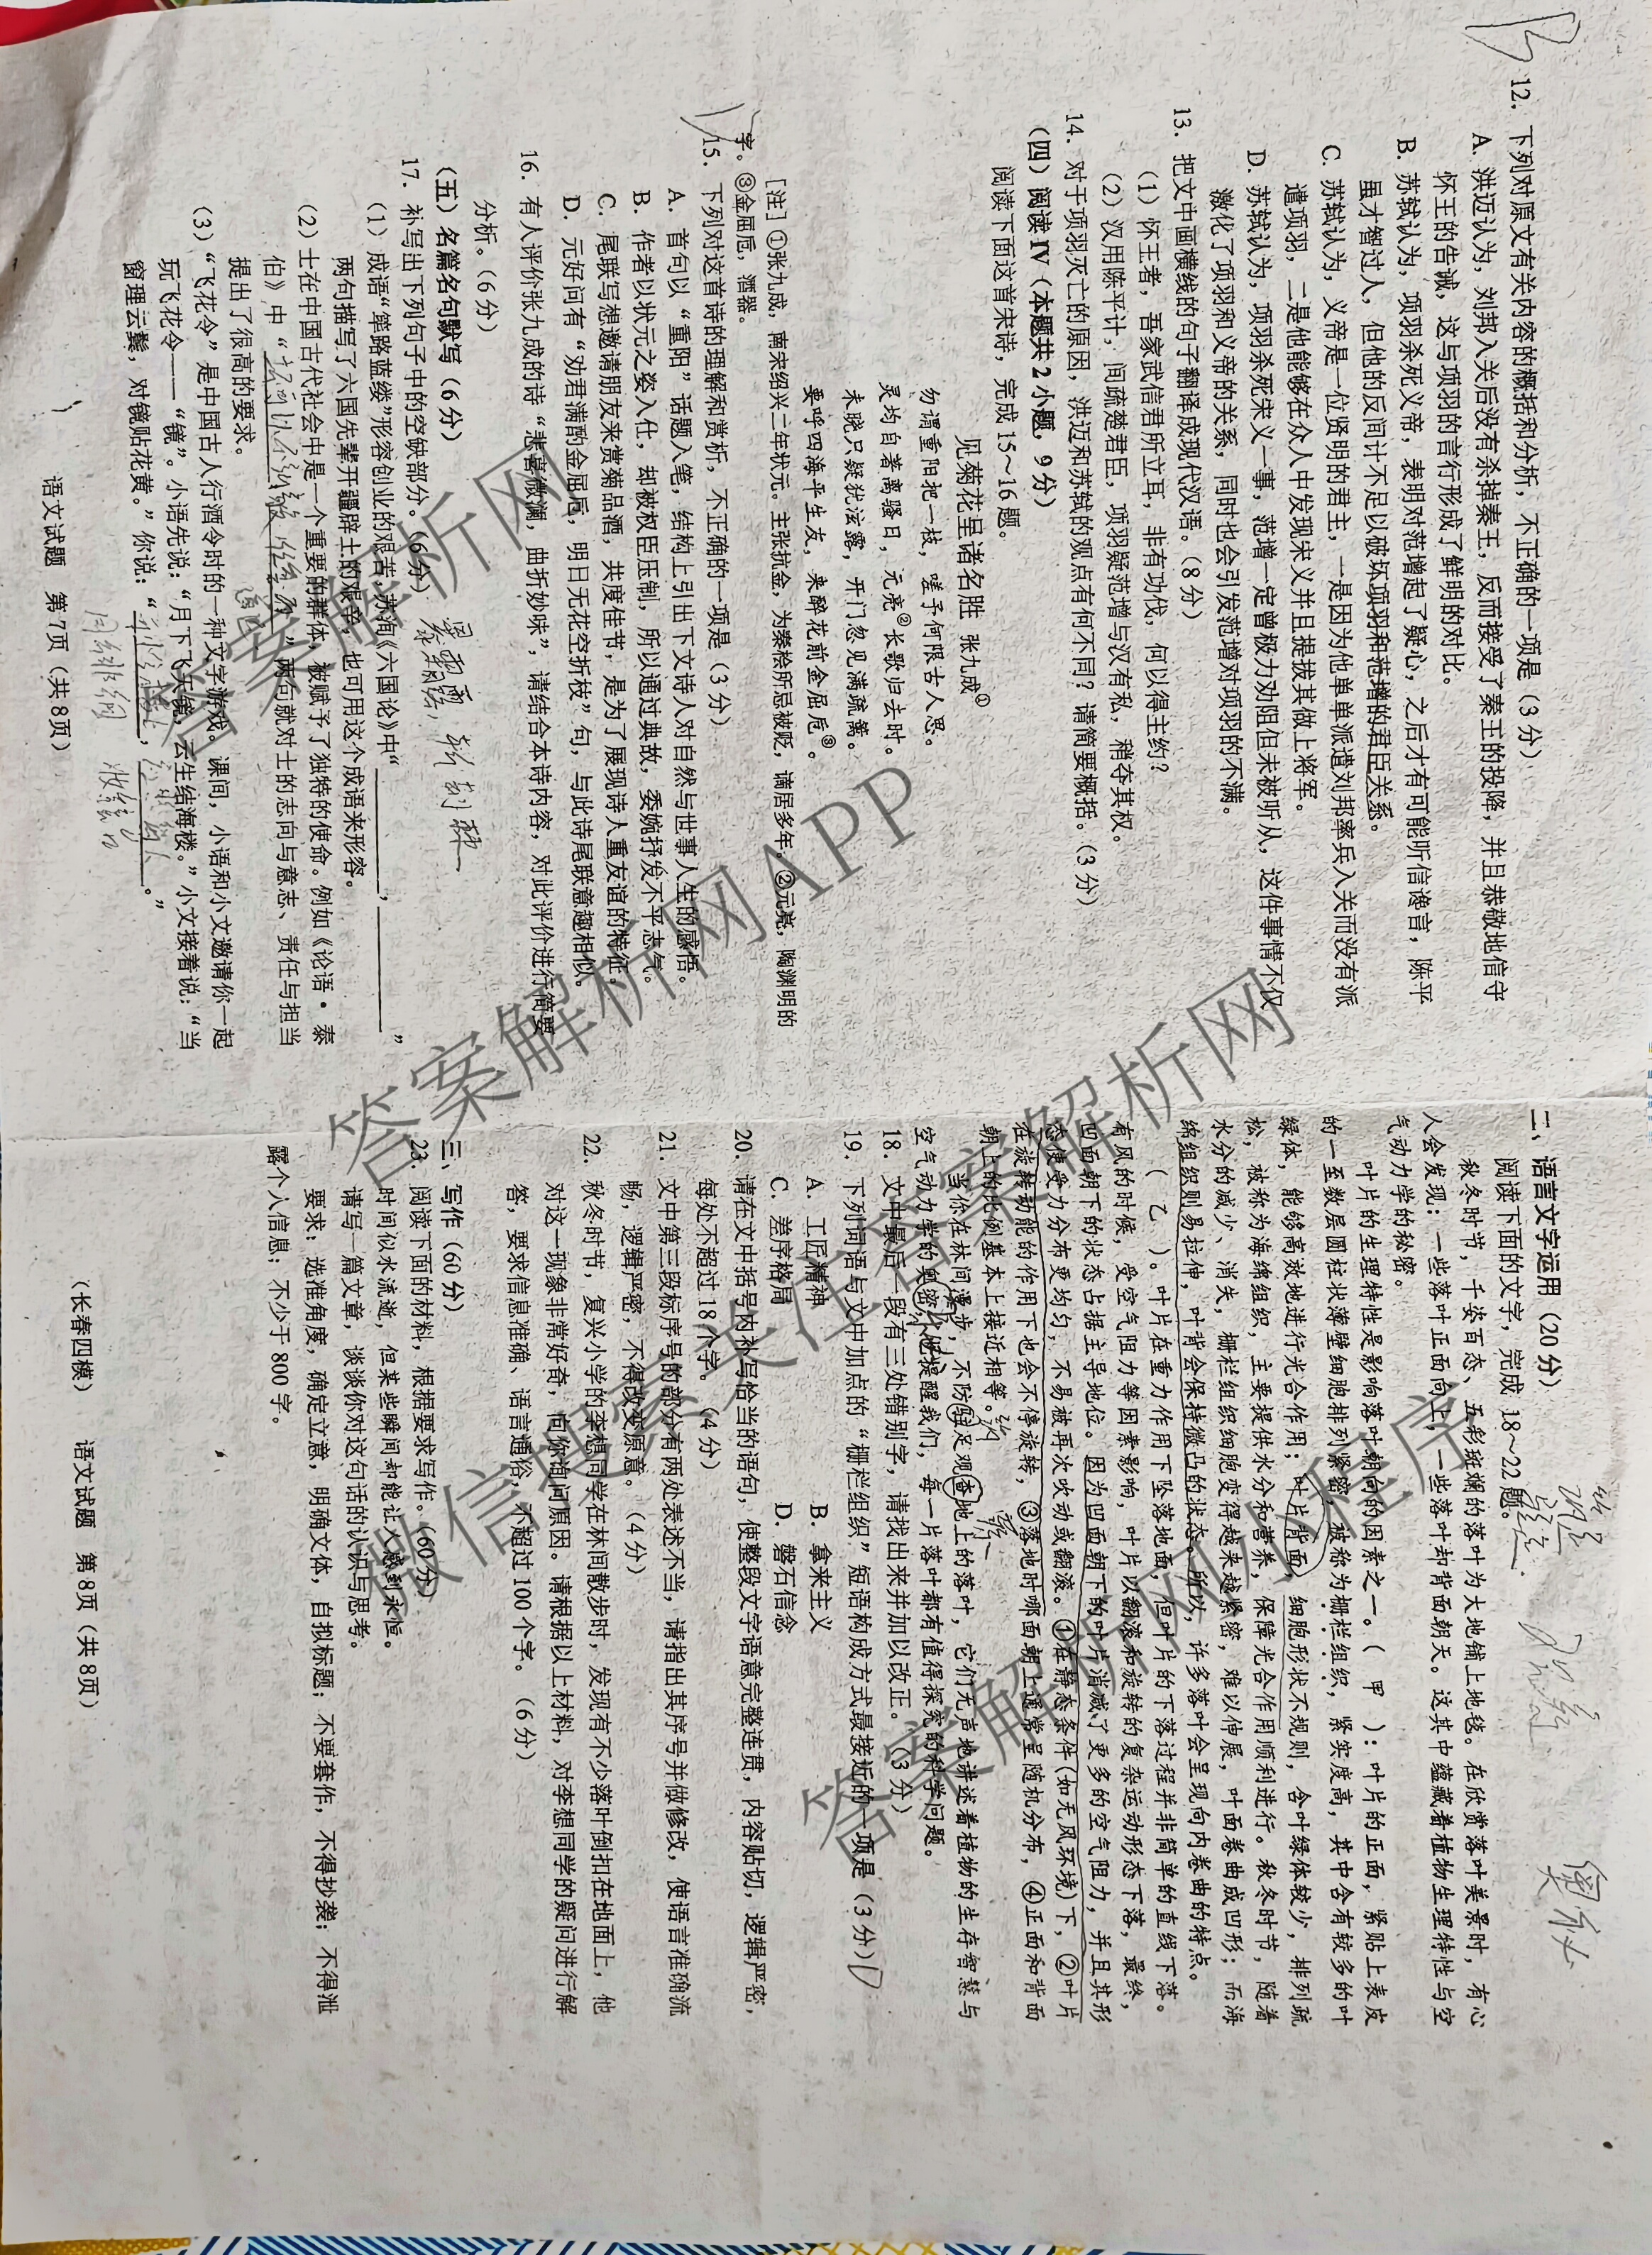 12. 下列对原文有关内容的概括和分析，不正确的一项是（3分）
A. 洪迈认为，刘邦入关后没有杀掉秦王，反而接受了秦王的投降，并且恭敬地信守
怀王的告诫，这与项羽的言行形成了鲜明的对比。
B. 苏轼认为，项羽杀死义帝，表明对范增起了疑心，之后才有可能听信谗言，陈平
虽才智过人，但他的反间计不足以破坏项羽和范增的君臣关系。
C. 苏轼认为，义帝是一位贤明的君主，一是因为他单单派遣刘邦率兵入关而没有派
遣项羽，二是他能够在众人中发现宋义并且提拔其做上将军。
D. 苏轼认为，项羽杀死宋义一事，范增一定曾极力劝阻但未被听从，这件事情不仅
激化了项羽和义帝的关系，同时也会引发范增对项羽的不满。
13. 把文中画横线的句子翻译成现代汉语。（8分）
（1）怀王者，吾家武信君所立耳，非有功伐，何以得主约？
（2）汉用陈平计，间疏楚君臣，项羽疑范增与汉有私，稍夺其权。
14. 对于项羽灭亡的原因，洪迈和苏轼的观点有何不同？请简要概括。（3分）
（四）阅读Ⅳ（本题共2小题，9分）
阅读下面这首宋诗，完成15～16题。
见菊花呈诸名胜 张九成①
勿谓重阳把一枝，嗟予何限古人思。
灵均自著离骚日，元亮②长歌归去时。
未晓只疑犹泫露，开门忽见满疏篱。
要呼四海平生友，来醉花前金屈卮③。
[注]①张九成，南宋绍兴二年状元。主张抗金，为秦桧所忌被贬，谪居多年。②元亮，陶渊明的
字。③金屈卮，酒器。
15. 下列对这首诗的理解和赏析，不正确的一项是（3分）
A. 首句以“重阳”话题入笔，结构上引出下文诗人对自然与世事人生的感悟。
B. 作者以状元之姿入仕，却被权臣压制，所以通过典故，委婉抒发不平志气。
C. 尾联写想邀请朋友来赏菊品酒，共度佳节，是为了展现诗人重友谊的特征。
D. 元好问有“劝君满酌金屈卮，明日无花空折枝”句，与此诗尾联意趣相似。
16. 有人评价张九成的诗“悲喜微澜，曲折妙味”，请结合本诗内容，对此评价进行简要
分析。（6分）
（五）名篇名句默写（6分）
17. 补写出下列句子中的空缺部分。（6分）
暴霜露，斩荆棘
（1）成语“筚路蓝缕”形容创业的艰苦，苏洵《六国论》中“________，________”
两句描写了六国先辈开疆辟土的艰辛，也可用这个成语来形容。
（2）士在中国古代社会中是一个重要的群体，被赋予了独特的使命。例如《论语·泰
伯》中“士不可以不弘毅，任重而道远”两句就对士的志向与意志、责任与担当
提出了很高的要求。
（3）“飞花令”是中国古人行酒令时的一种文字游戏。课间，小语和小文邀请你一起
玩飞花令——“镜”。小语先说：“月下飞天镜，云生结海楼。”小文接着说：“当
窗理云鬓，对镜贴花黄。”你说：“________，________。”
语文试题 第7页（共8页）
二、语言文字运用（20分）
阅读下面的文字，完成18～22题。
秋冬时节，千姿百态、五彩斑斓的落叶为大地铺上地毯。在欣赏落叶美景时，有心
人会发现：一些落叶正面向上，一些落叶却背面朝天。这其中蕴藏着植物生理特性与空
气动力学的秘密。
叶片的生理特性是影响落叶朝向的因素之一。（ 甲 ）：叶片的正面，紧贴上表皮
的一至数层圆柱状薄壁细胞排列紧密，被称为栅栏组织，紧实度高，其中含有较多的叶
绿体，能够高效地进行光合作用；叶片背面，细胞形状不规则，含叶绿体较少，排列疏
松，被称为海绵组织，主要提供水分和营养，保障光合作用顺利进行。秋冬时节，随着
水分的减少、消失，栅栏组织细胞变得越来越紧密，难以伸展，叶面卷曲成凹形；而海
绵组织则易拉伸，叶背会保持微凸的状态。所以，许多落叶会呈现向内卷曲的特点。
（ 乙 ）。叶片在重力作用下坠落地面，但叶片的下落过程并非简单的直线下落。
有风的时候，受空气阻力等因素影响，叶片以翻滚和旋转的复杂运动形态下落，最终，
凹面朝下的状态占据主导地位。因为凹面朝下的叶片消减了更多的空气阻力，并且其形
态使受力分布更均匀，不易被再次吹动或翻滚。①在静态条件（如无风环境）下，②叶片
在旋转动能的作用下也会不停旋转，③落地时哪面朝上通常呈随机分布，④正面和背面
朝上的比例基本上接近相等。
当你在林间漫步，不防驻足观查地上的落叶，它们无声地讲述着植物的生存智慧与
空气动力学的奥密，也提醒我们，每一片落叶都有值得探究的科学问题。
18. 文中最后一段有三处错别字，请找出来并加以改正。（3分）
19. 下列词语与文中加点的“栅栏组织”短语构成方式最接近的一项是（3分）D
A. 工匠精神 B. 拿来主义
C. 差序格局 D. 磐石信念
20. 请在文中括号内补写恰当的语句，使整段文字语意完整连贯，内容贴切，逻辑严密，
每处不超过18个字。（4分）
21. 文中第三段标序号的部分有两处表述不当，请指出其序号并做修改，使语言准确流
畅，逻辑严密，不得改变原意。（4分）
22. 秋冬时节，复兴小学的李想同学在林间散步时，发现有不少落叶倒扣在地面上，他
对这一现象非常好奇，向你询问原因。请根据以上材料，对李想同学的疑问进行解
答，要求信息准确、语言通俗，不超过100个字。（6分）
三、写作（60分）
23. 阅读下面的材料，根据要求写作。（60分）
时间似水流逝，但某些瞬间却能让人感到永恒。
请写一篇文章，谈谈你对这句话的认识与思考。
要求：选准角度，确定立意，明确文体，自拟标题；不要套作，不得抄袭；不得泄
露个人信息；不少于800字。
（长春四模） 语文试题 第8页（共8页）
答案解析网
答案解析网APP
微信搜索关注答案解析网
答案解析网小程序